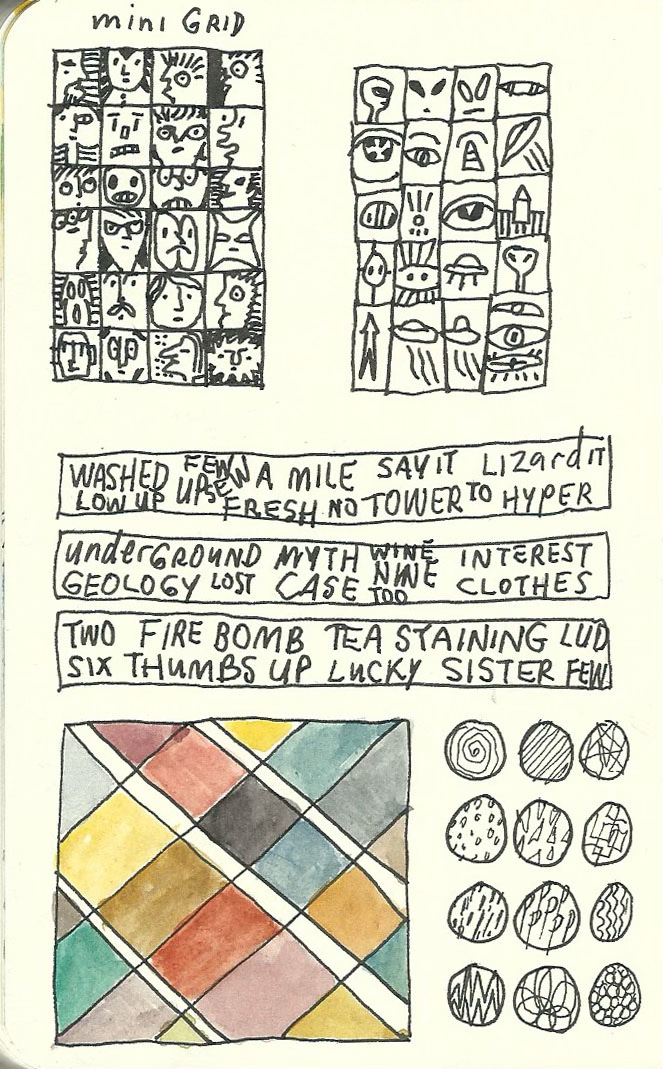 mini GRID
WASHED FEW A MILE SAY IT LIZARD IT
LOW UP UPSE FRESH NO TOWER TO HYPER
underGROUND MYTH WINE INTEREST
GEOLOGY LOST CASE NINE TOO CLOTHES
TWO FIRE BOMB TEA STAINING LUD
SIX THUMBS UP LUCKY SISTER FEW